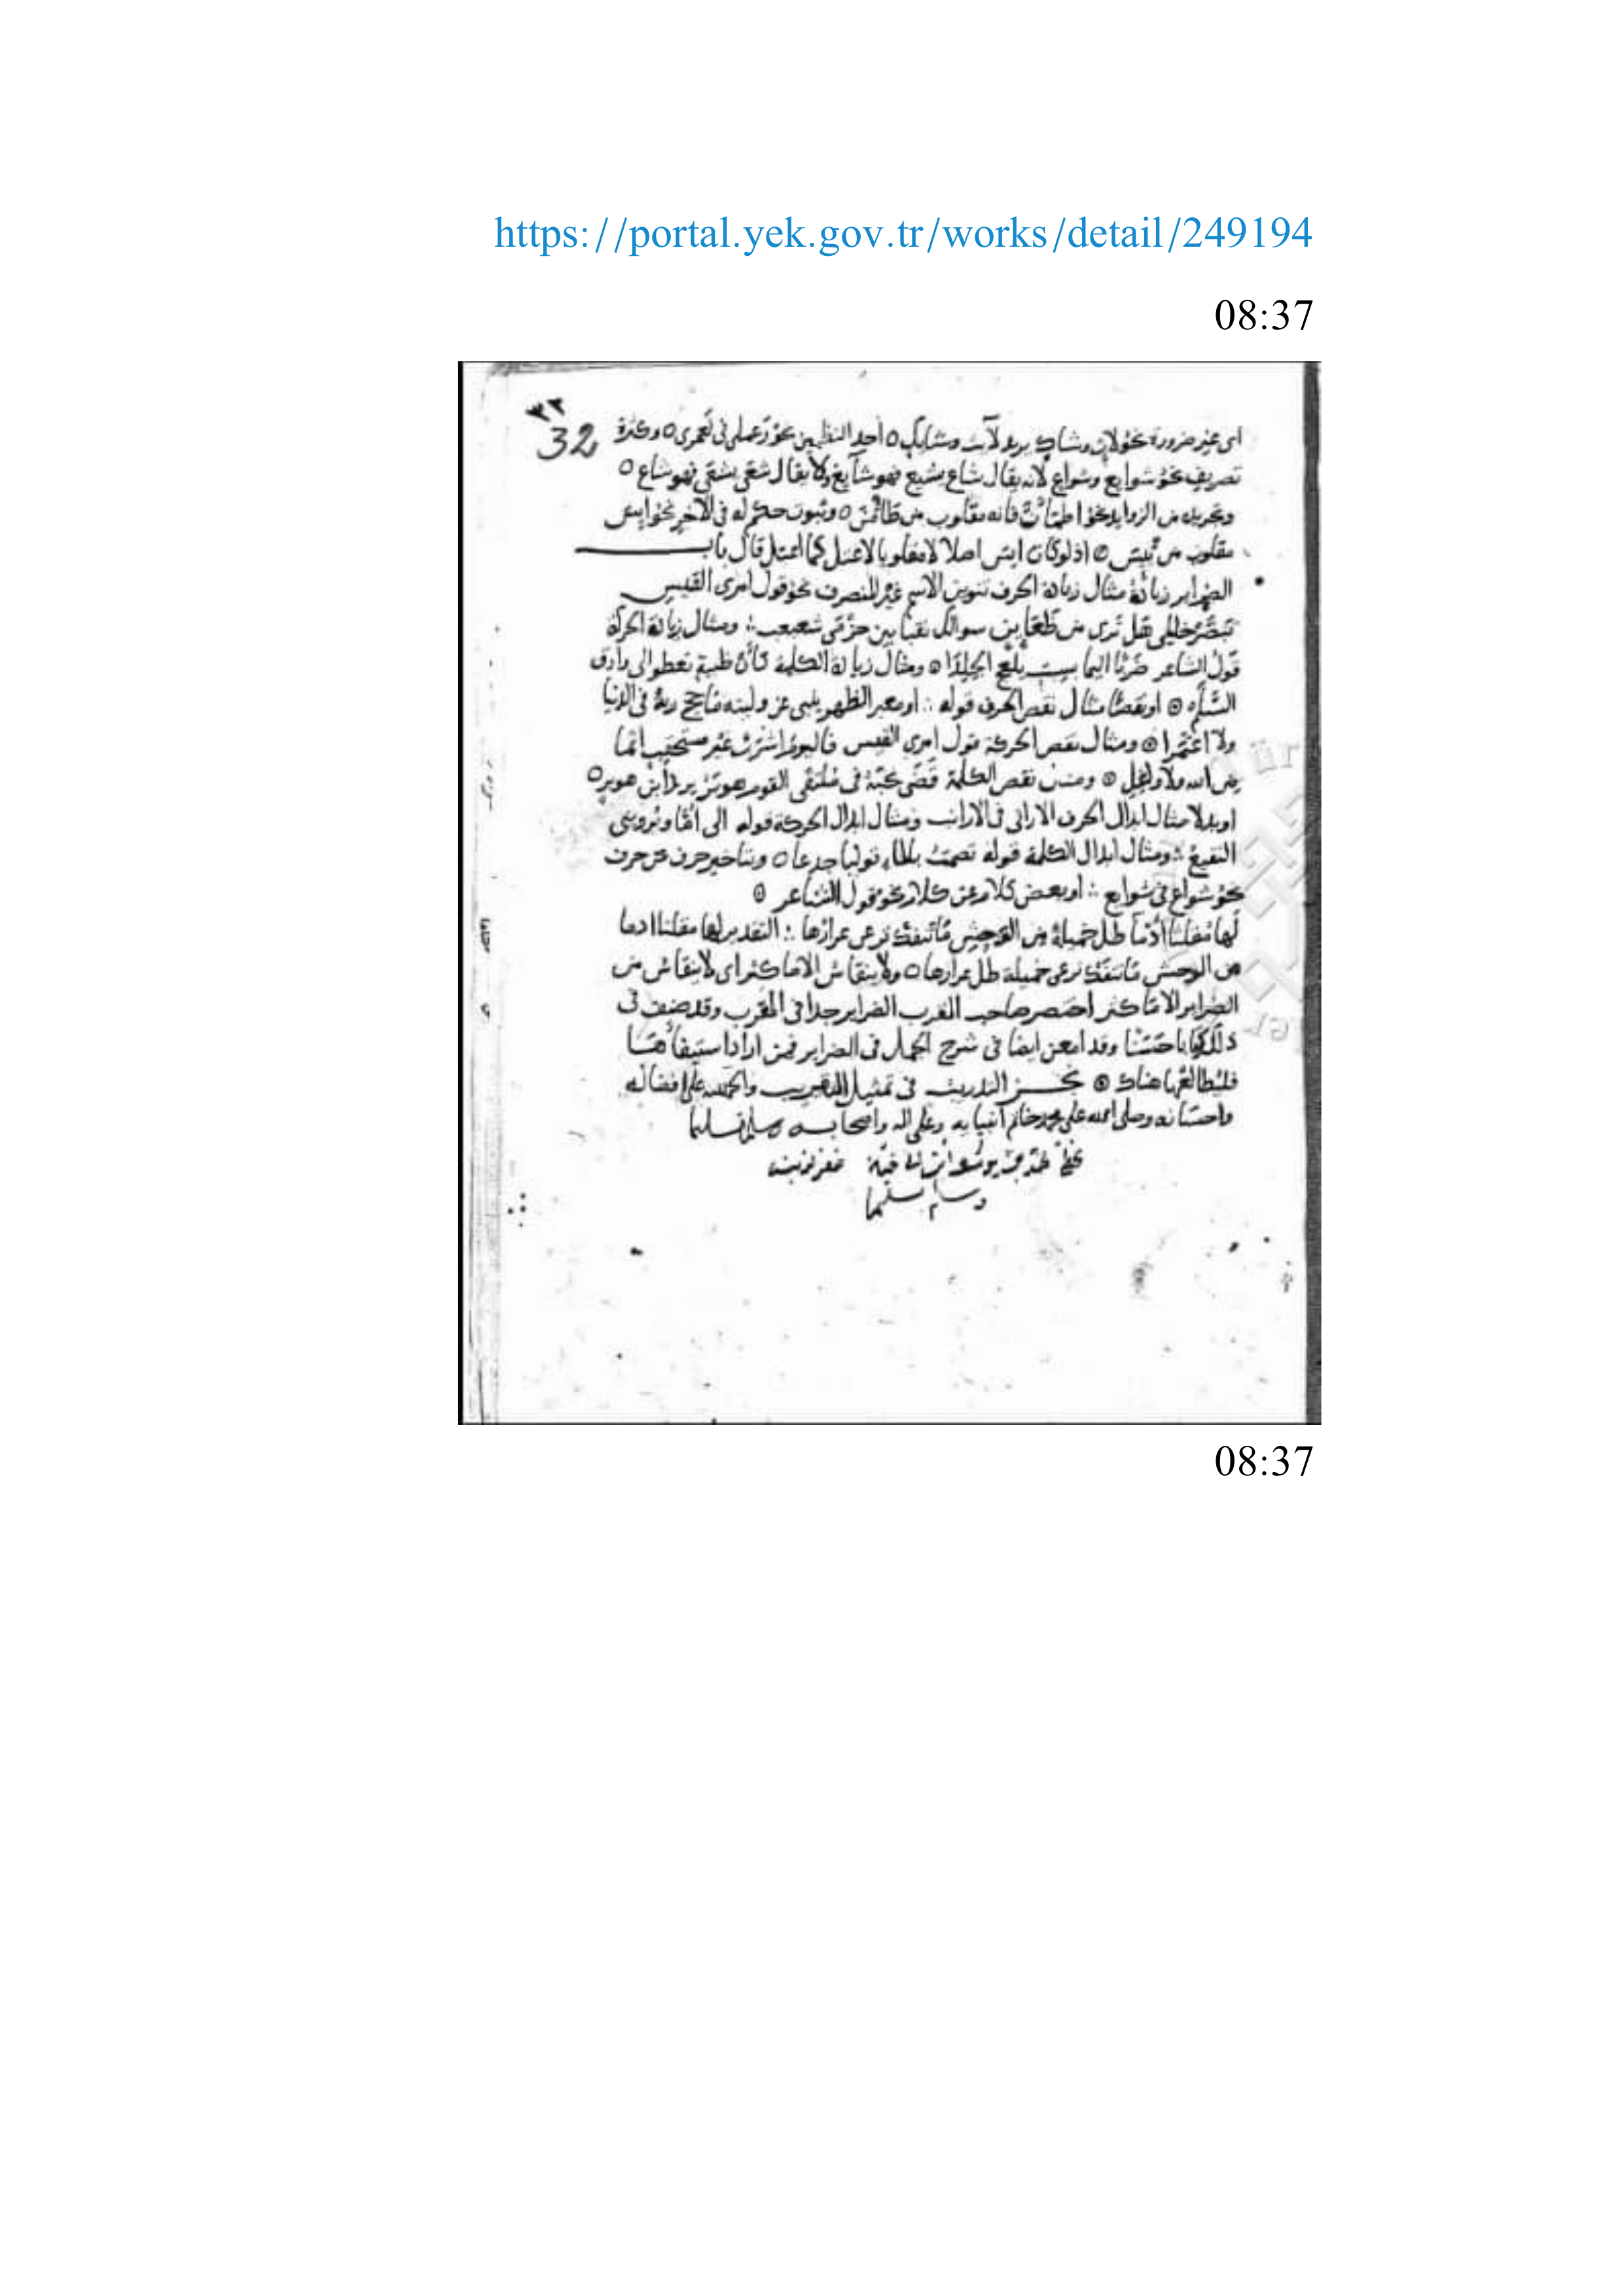 https://portal.yek.gov.tr/works/detail/249194
08:37
٣٢
32
اى غير ضرورة نحو لاث وشاك يريد لايث وشايك ٥ احد النظمين نحو رعملى فى لعمرى ٥ وكثرة
تصريف نحو شوايع وشواع لانه يقال شاع يشيع فهو شايع ولا يقال شعى يشعى فهو شاع ٥
وتجريد من الزوايد نحو اطمأن فانه مقلوب من طأمن ٥ وثبوت حكم له فى الآخر نحو ايس
مقلوب من يئس ٥ اذ لو كان ايس اصلا لا مقلوبا لاعتل كما اعتل قال باب
الضراير زيادة مثال زيادة الحرف تنوين الاسم غير المنصرف نحو قول امرى القيس
تبصر خليلى هل ترى من ظعاين سوالك نقبا بين حزمى شعبعب ومثال زيادة الحركة
قول الشاعر ضربا اليما بسبت يلعج الجلدا ٥ ومثال زيادة الكلمة كأن ظبية تعطو الى وارق
السلم ٥ او نقصا مثال نقص الحرف قوله او معبر الظهر ينبى عن وليته ما حج ربه فى الدنيا
ولا اعتمرا ٥ ومثال نقص الحركة قول امرى القيس فاليوم اشرب غير مستحقب اثما
من الله ولا واغل ٥ نقص الكلمة قضى نحبه فى ملتقى القوم هوبر يريد ابن هوبر ٥
او بدلا مثال ابدال الحرف الارانى فى الارانب ومثال ابدال الحركة قوله الى امّا وترويـنى
النقيع ومثال ابدال الكلمة قوله تصمت بالماء تولبا جدعا ٥ وبتاخير حرف عن حرف
نحو شواع فى شوايع او بعض كلام عن كلام نحو قول الشاعر
لها مقلتا ادما طل خميلة من الوحش ما تنفك ترعى عرارها التقدير لها مقلتا ادما
من الوحش ما تنفك ترعى خميلة طل عرارها ٥ ولا ينقاس الا ما كثر اى لا ينقاس من
الضراير الا ما كثر اختصر صاحب المقرب الضراير جدا فى المقرب وقد صنف فى
ذلك كتابا حسنا وقد امعن ايضا فى شرح الجمل فى الضراير فمن اراد استيفاها
فليطالعها هناك ٥ نجز التدريب فى تمثيل التقريب والحمد لله على افضاله
واحسانه وصلى الله على محمد خاتم انبيايه وعلى اله واصحابه وسلم تسليما
08:37